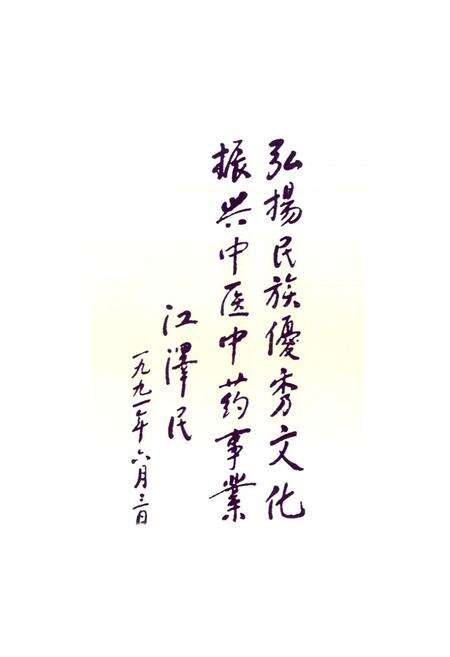 弘揚民族優秀文化
振兴中医中药事業
江澤民
一九九一年六月三日